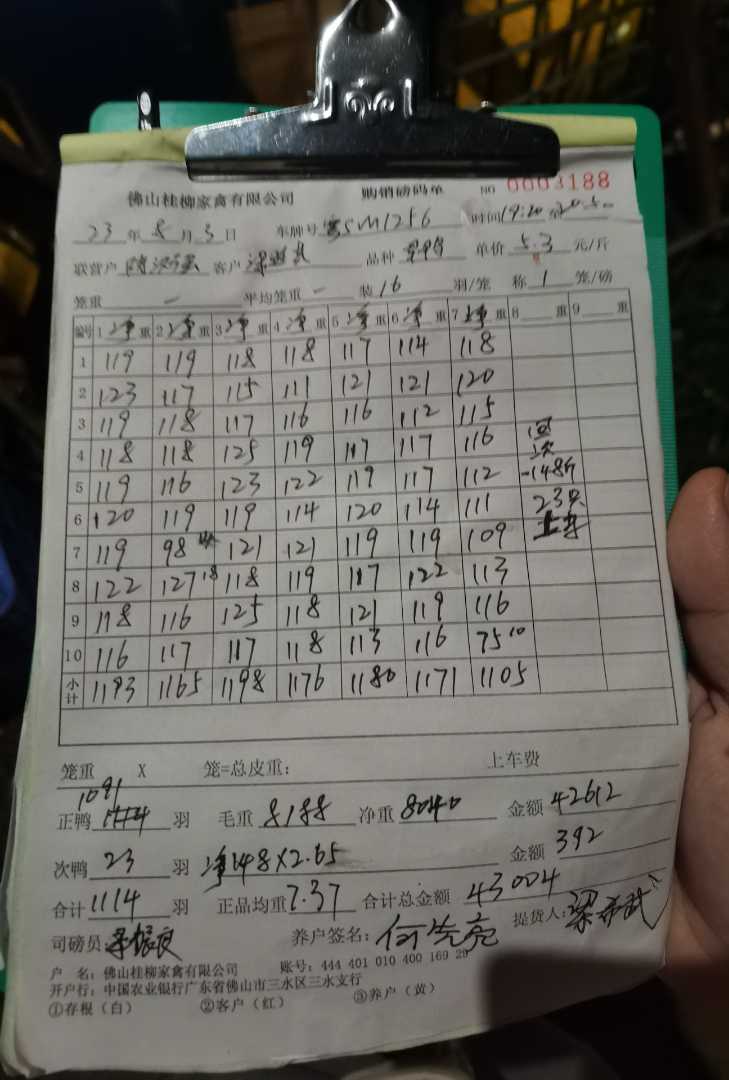 佛山桂柳家禽有限公司 购销磅码单 NO 0003188
23 年 8 月 3 日 车牌号 SM1256 时间 19:20
联营户 客户 品种 单价 5.3 元/斤
笼重 — 平均笼重 — 装 16 羽/笼 称 1 笼/磅
编号 1 净 重 2 净 重 3 净 重 4 净 重 5 净 重 6 净 重 7 净 重 8 重 9 重
1 119 119 118 118 117 114 118
2 123 117 115 111 121 121 120
3 119 118 117 116 116 112 115
4 118 118 125 119 117 117 116 回次
5 119 116 123 122 119 117 112 -148斤
6 120 119 119 114 120 114 111 23只
7 119 98 121 121 119 119 109 上车
8 122 127 18 118 119 117 122 113
9 118 116 125 118 121 119 116
10 116 117 117 118 113 116 75 10
小计 1193 1165 1198 1176 1180 1171 1105
笼重 X 笼=总皮重: 上车费
1091
正鸭 1114 羽 毛重 8188 净重 8040 金额 42612
次鸭 23 羽 净148X2.65 金额 392
合计 1114 羽 正品均重 7.37 合计总金额 43004
司磅员: 养户签名: 提货人:
户 名: 佛山桂柳家禽有限公司 账号: 444 401 010 400 169 29
开户行: 中国农业银行广东省佛山市三水区三水支行
①存根(白) ②客户(红) ③养户(黄)